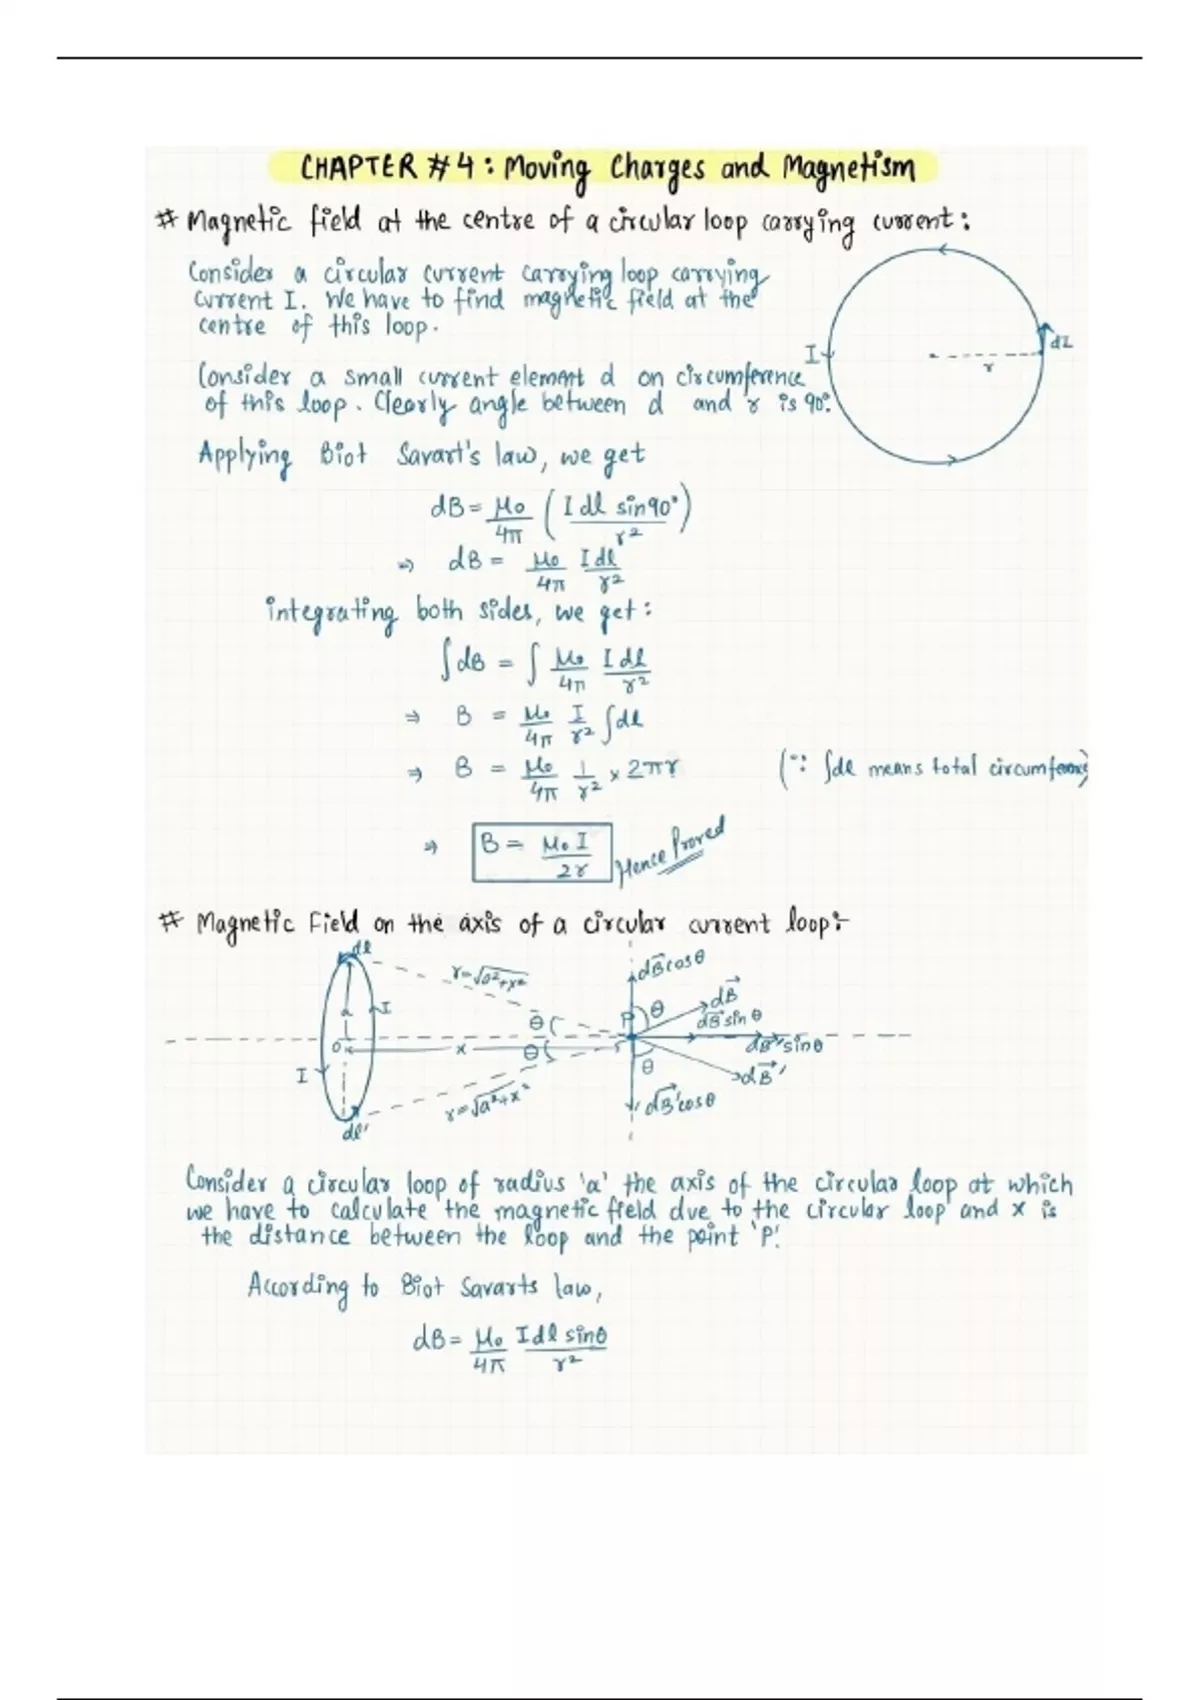 CHAPTER #4: Moving Charges and Magnetism
# Magnetic field at the centre of a circular loop carrying current:
Consider a circular current carrying loop carrying
current I. We have to find magnetic field at the
centre of this loop.
I
dl
r
Consider a small current element d on circumference
of this loop. Clearly angle between d and r is 90°.
Applying Biot Savart's law, we get
dB = μ₀/4π (I dl sin90°/r²)
⇒ dB = μ₀/4π I dl/r²
integrating both sides, we get:
∫dB = ∫ μ₀/4π I dl/r²
⇒ B = μ₀/4π I/r² ∫dl
⇒ B = μ₀/4π 1/r² × 2πr (∵ ∫dl means total circumference)
⇒ B = μ₀ I/2r Hence Proved
# Magnetic Field on the axis of a circular current loop:-
dl
r=√a²+x²
dB cosθ
dB
dB sinθ
a
I
θ
P
θ
O
x
θ
dB' sinθ
I
θ
dB'
r=√a²+x²
dB' cosθ
dl'
Consider a circular loop of radius 'a' the axis of the circular loop at which
we have to calculate the magnetic field due to the circular loop and x is
the distance between the loop and the point 'P'.
According to Biot Savarts law,
dB = μ₀/4π I dl sinθ/r²